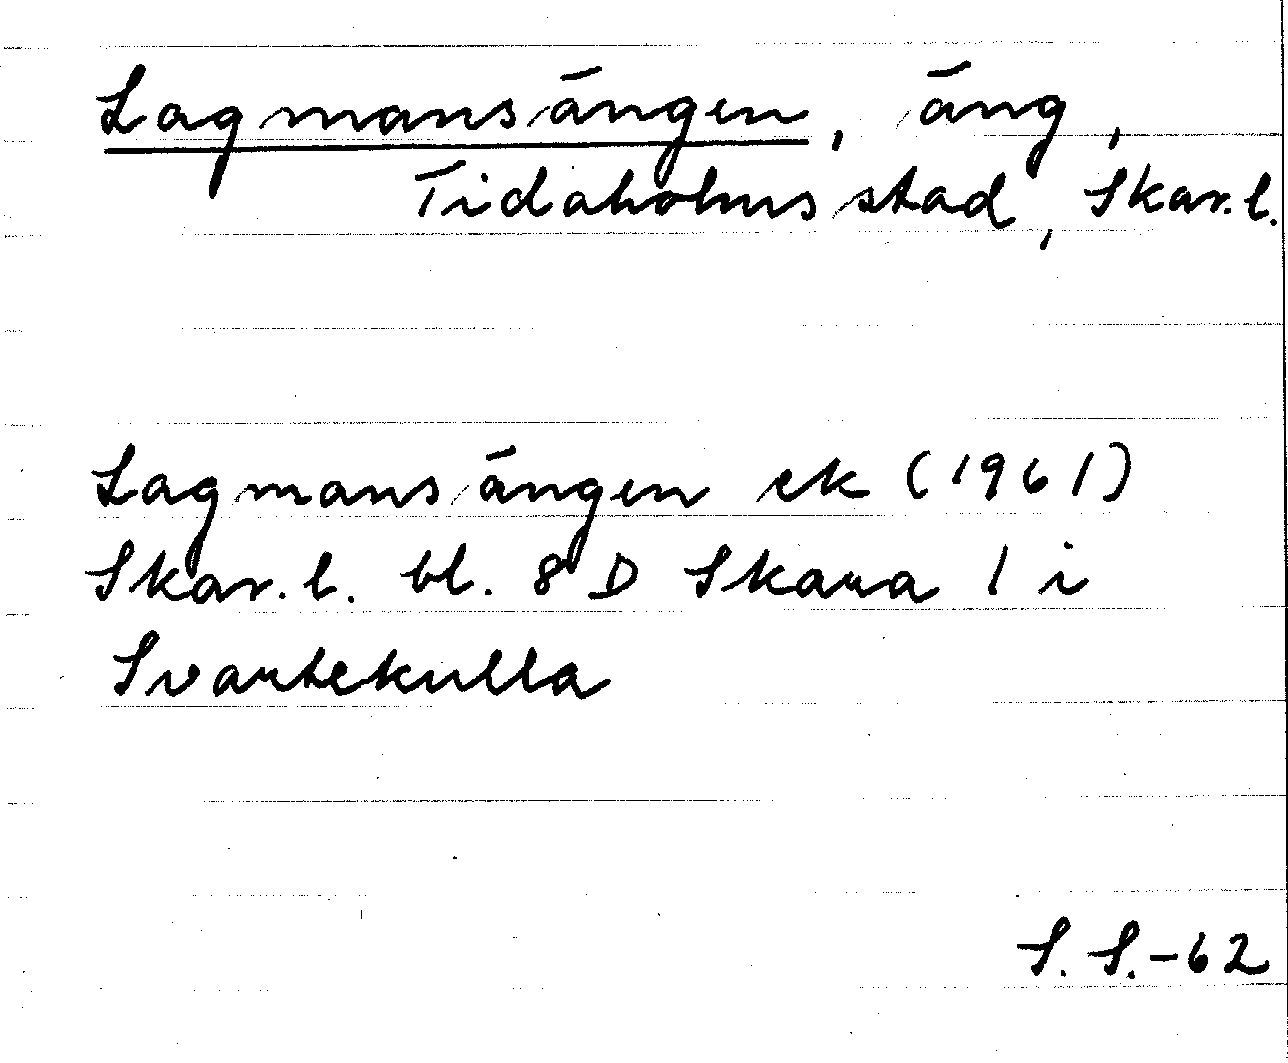 Lagmansängen, äng,
Tidaholms stad, Skar.l.
Lagmansängen ek (1961)
Skar.l. bl. 8 D Skara 1 i
Svartekulla
S. S.-62